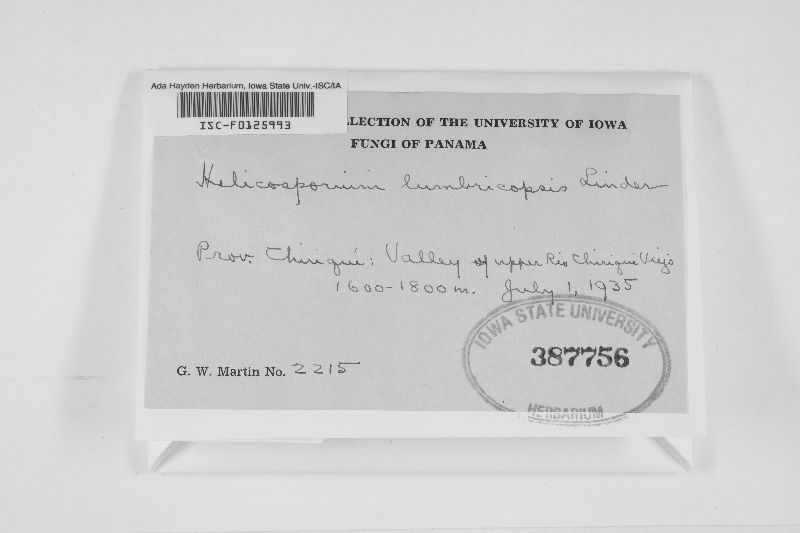 Ada Hayden Herbarium, Iowa State Univ.-ISC/IA
ISC-F0125993
LLECTION OF THE UNIVERSITY OF IOWA
FUNGI OF PANAMA
Helicosporium lumbricopsis Linder
Prov. Chiriquí: Valley of upper Rio Chiriqui Viejo
1600-1800 m. July 1, 1935
G. W. Martin No. 2215
IOWA STATE UNIVERSITY
387756
HERBARIUM